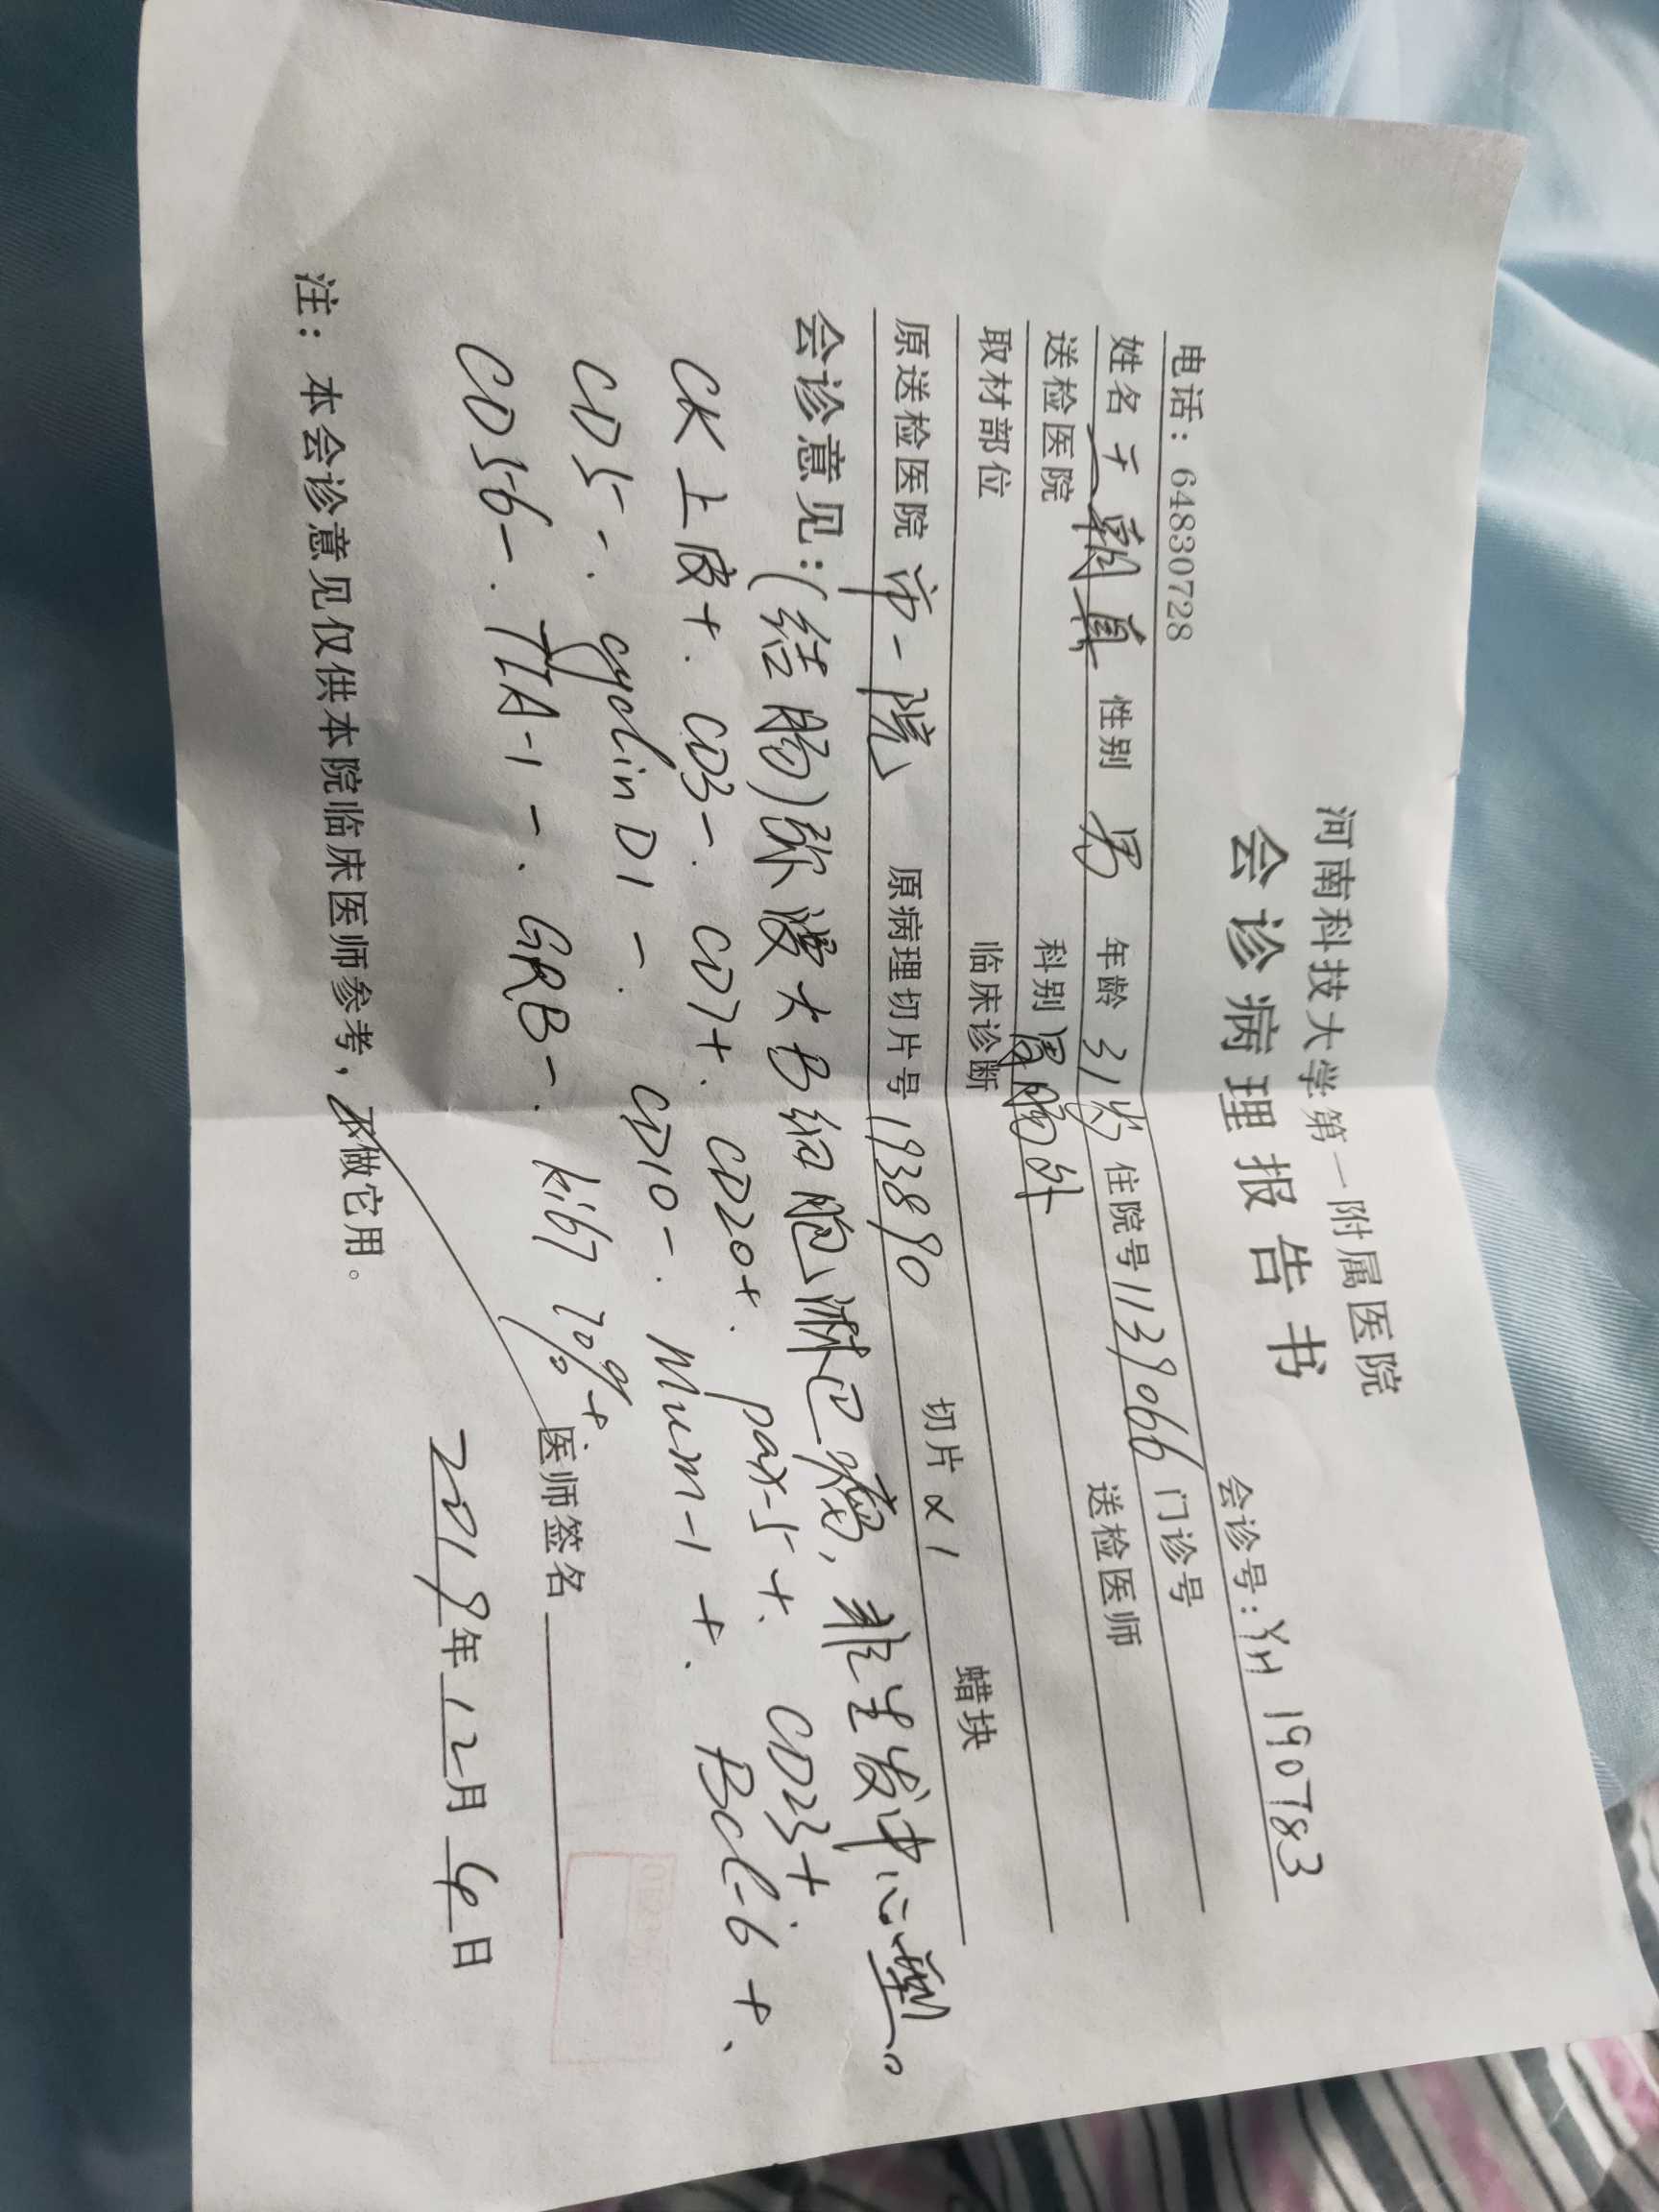 河南科技大学第一附属医院
会诊病理报告书
电话：64830728 会诊号：YH 190783
姓名 王朝真 性别 男 年龄 31岁 住院号 1139066 门诊号
送检医院 科别 胃肠外 送检医师
取材部位 临床诊断
原送检医院 市一院 原病理切片号 193890 切片 x1 蜡块
会诊意见：(结肠)弥漫大B细胞淋巴瘤，非生发中心型。
CK上皮+. CD3-. CD7+. CD20+. pax-5+. CD23+
CD5-. cyclin D1 -. CD10-. Mum-1 +. Bcl-6 +.
CD56-. TIA-1 -. GRB-. ki67 70%+.
医师签名
2019年12月6日
注：本会诊意见仅供本院临床医师参考，不做它用。